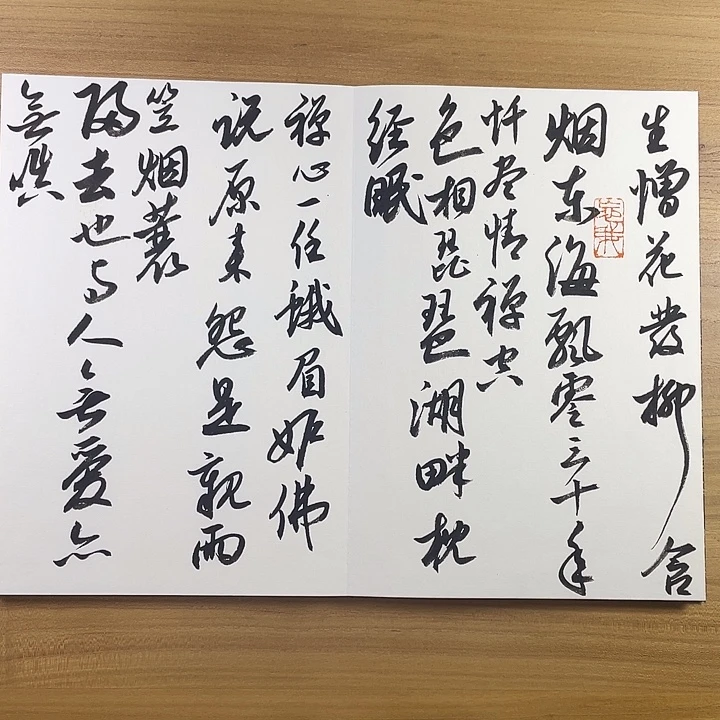 生憎花發柳含
烟东海飘零三十年
忏尽情禅空
色相琵琶湖畔枕
经眠
禅心一任蛾眉妒佛
说原来怨是親雨
笠烟蓑
归去也与人無愛亦
無嗔